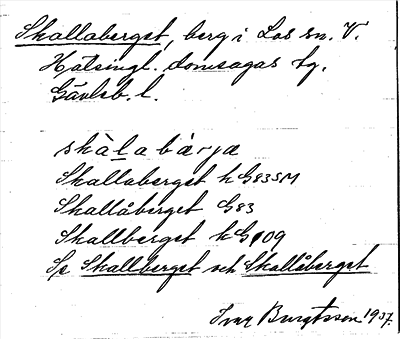 Skallaberget, berg i Los sn. V.
Hälsingl. domsagas tg.
Gävleb. l.
skàlabàrja
Skallaberget hG83SM
Skallåberget G83
Skallberget hG109
Se Skallberget och Skallåberget
Ivar Bengtsson 1937.